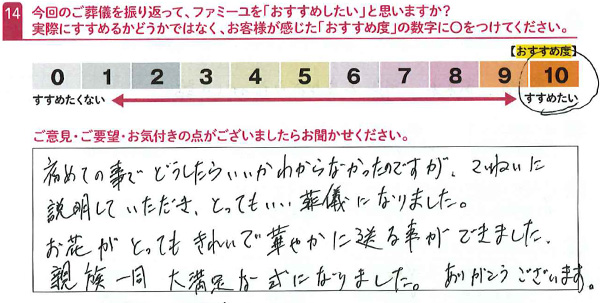 14 今回のご葬儀を振り返って、ファミーユを「おすすめしたい」と思いますか?
実際にすすめるかどうかではなく、お客様が感じた「おすすめ度」の数字に○をつけてください。
【おすすめ度】
0 1 2 3 4 5 6 7 8 9 10
すすめたくない すすめたい
ご意見・ご要望・お気付きの点がございましたらお聞かせください。
初めての事でどうしたらいいかわからなかったのですが、ていねいに
説明していただき、とってもいい葬儀になりました。
お花がとってもきれいで華やかに送る事ができました、
親族一同 大満足な式になりました。ありがとうございます。